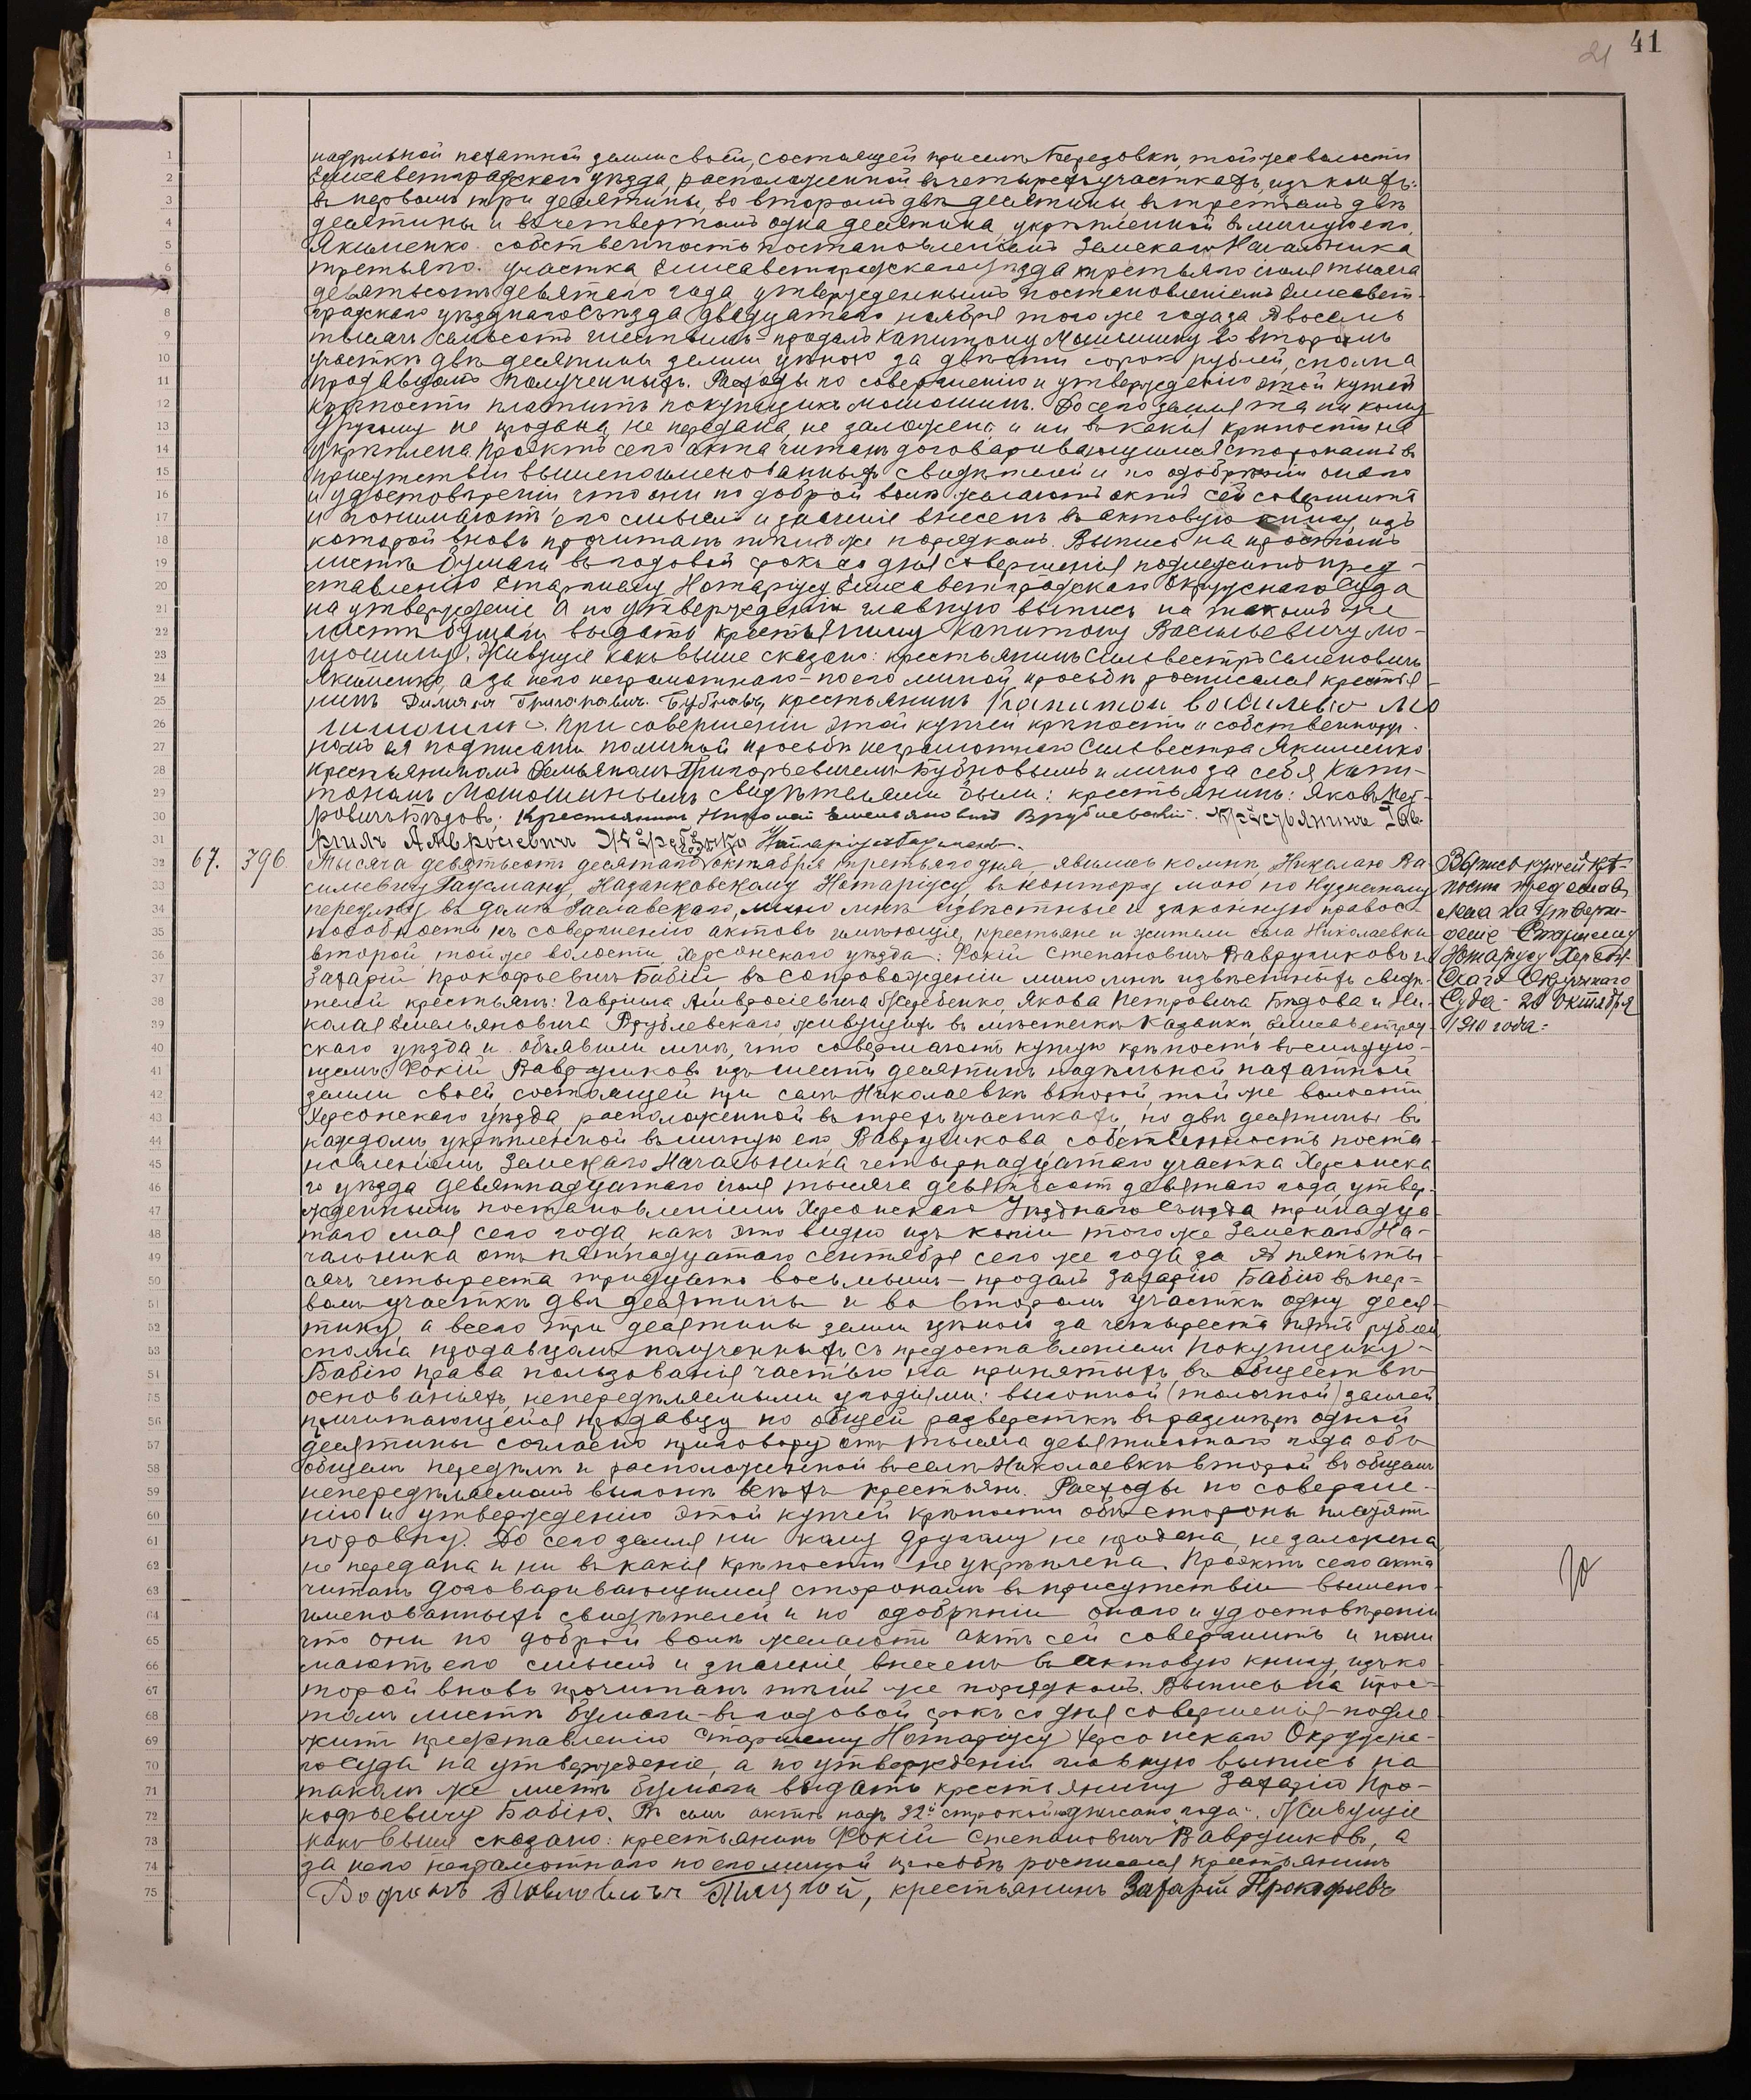 41
21
надѣльной пахатной земли своей, состоящей при селѣ Бередовкѣ, той же волости
Елисаветградскаго уѣзда, расположенной въ четырехъ участкахъ, изъ коихъ:
въ первомъ три десятины, во второмъ двѣ десятины въ третьемъ двѣ
десятины и въ четвертомъ одна десятина, укрѣпленной въ личную его,
Якименко собственность постановленіемъ Земскаго Начальника
третьяго участка Елисаветградскаго уѣзда третьяго іюля тысяча
девятьсотъ девятаго года, утвержденнымъ постановленіемъ Елисавет-
градскаго уѣзднаго Съѣзда двадцатаго ноября того же года за № восемь
тысячъ семьсотъ шестымъ - продалъ Капитону Мошошину во второмъ
участкѣ двѣ десятины земли, цѣною за двѣсти сорокъ рублей, сполна
продавцомъ полученныхъ. Расходы по совершенію и утвержденію этой купчей
крѣпости платитъ покупщикъ Мошошинъ. До сего земля та ни кому
другому не продана, не передана, не заложена и ни въ какія крѣпости не
укрѣплена. Проектъ сего акта читанъ договаривающимся сторонамъ въ
присутствіи вышепоименованныхъ свидѣтелей и по одобреніи онаго
и удостовѣреніи, что они по доброй волѣ желаютъ актъ сей совершить
и понимаютъ его смыслъ и значеніе внесенъ въ актовую книгу, изъ
которой вновь прочитанъ тѣмъ же порядкомъ. Выпись на простомъ
листѣ бумаги въ годовой срокъ со дня совершенія подлежитъ пред-
ставленію Старшему Нотаріусу Елисаветградскаго Окружнаго Суда
на утвержденіе, а по утвержденіи главную выпись на такомъ же
листѣ бумаги выдать крестьянину Капитону Васильевичу Мо-
шошину. Живущіе какъ выше сказано: крестьянинъ Сильвестръ Семеновичъ
Якименко, а за него неграмотнаго - по его личной просьбѣ росписался крестья-
нинъ Димянъ Григоравич. Бубновъ, крестьянинъ Капитон Васильевъ Мо
шошинъ. При совершеніи этой купчей крѣпости и собственноруч-
номъ ея подписаніи по личной просьбѣ неграмотнаго Сильвестра Якименко
крестьяниномъ Демьяномъ Григорьевичемъ Бубновымъ и лично за себя Капи-
тономъ Мошошинымъ свидѣтелями были: крестьянинъ: Яковъ Пет-
ровичъ Бѣдовъ; Крестьянинъ Николай Емельяновичъ Врублевский. Крестьянинъ Гав-
рiилъ Амвросiевич Жеребенко Нотаріусъ Гаусманъ.
67. 396 Тысяча девятьсотъ десятаго года октября третьяго дня, явились ко мнѣ, Николаю Ва-
сильевичу Гаусману, Казанковскому Нотаріусу, въ контору мою, по Кузнечному
переулку въ домѣ Заславскаго, лично мнѣ извѣстные и законную правос-
пособность къ совершенію актовъ имѣющіе, крестьяне и жители села Николаевки
второй, той же волости, Херсонскаго уѣзда: Фокій Степановичъ Вавруликовъ и
Захарій Прокофьевичъ Бабій, въ сопровожденіи лично мнѣ извѣстныхъ свидѣ-
телей крестьянъ: Гавріила Амвросіевича Жеребенко, Якова Петровича Бѣдова и Ни-
колая Емельяновича Врублевскаго живущихъ въ мѣстечкѣ Казанкѣ, Елисаветград-
скаго уѣзда и объявили мнѣ, что совершаютъ купчую крѣпость въ слѣдую-
щемъ: Фокій Вавруликовъ изъ шести десятинъ надѣльной пахатной
земли своей, состоящей при селѣ Николаевкѣ второй, той же волости
Херсонскаго уѣзда, расположенной въ трехъ участкахъ, по двѣ десятины въ
каждомъ, укрѣпленной въ личную его, Вавруликова собственность поста-
новленіемъ Земскаго Начальника четырнадцатаго участка Херсонска-
го уѣзда девятнадцатаго іюля тысяча девятьсотъ девятаго года, утвер-
жденнымъ постановленіемъ Херсонскаго Уѣзднаго Съѣзда тринадца-
таго мая сего года, какъ это видно изъ копіи того же Земскаго На-
чальника отъ пятнадцатаго сентября сего же года за № пять ты-
сячъ четыреста тридцать восьмымъ - продалъ Захарію Бабію въ пер-
вомъ участкѣ двѣ десятины и во второмъ участкѣ одну деся-
тину, а всего три десятины земли цѣною за четыреста пять рублей,
сполна продавцомъ полученныхъ, съ предоставленіемъ покупщику -
Бабію права пользованія частью на принятыхъ въ обществѣ
основаніяхъ, непередѣляемыми угодіями: выгонной (толочной) землей
причитающейся продавцу по общей разверсткѣ въ размѣрѣ одной
десятины согласно приговору отъ тысяча девятисотаго года объ
общемъ передѣлѣ и расположенной въ селѣ Николаевкѣ второй въ общемъ
непередѣляемомъ выгонѣ всѣхъ крестьянъ. Расходы по соверше-
нію и утвержденію этой купчей крѣпости обѣ стороны платятъ
поровну. До сего земля ни кому другому не продана, не заложена,
не передана и ни въ какія крѣпости не укрѣплена. Проэктъ сего акта
читанъ договаривающимся сторонамъ въ присутствіи вышепо-
именованныхъ свидѣтелей и по одобреніи онаго и удостовѣреніи
что они по доброй волѣ желаютъ актъ сей совершить и пони-
маютъ его смыслъ и значеніе, внесенъ въ актовую книгу, изъ ко-
торой вновь прочитанъ тѣмъ же порядкомъ. Выпись на прос-
томъ листѣ бумаги - въ годовой срокъ со дня совершенія - подле-
житъ представленію Старшему Нотаріусу Херсонскаго Окружна-
го Суда на утвержденіе, а по утвержденіи главную выпись на
такомъ же листѣ бумаги выдать крестьянину Захарію Про-
кофьевичу Бабію. Въ семъ актѣ надъ 32й строкой надписано года. Живущіе
какъ выше сказано: крестьянинъ Фокій Степановичъ Вавруликовъ, а
за него неграмотнаго по его личной просьбѣ росписался крестьянинъ
Павловичъ крестьянинъ Захарій Прокофiевъ
Выпись купчей крѣ-
пости представ-
лена на утверж-
деніе Старшему
Нотаріусу Херсон-
скаго Окружнаго
Суда - 20 Октября
1910 года.